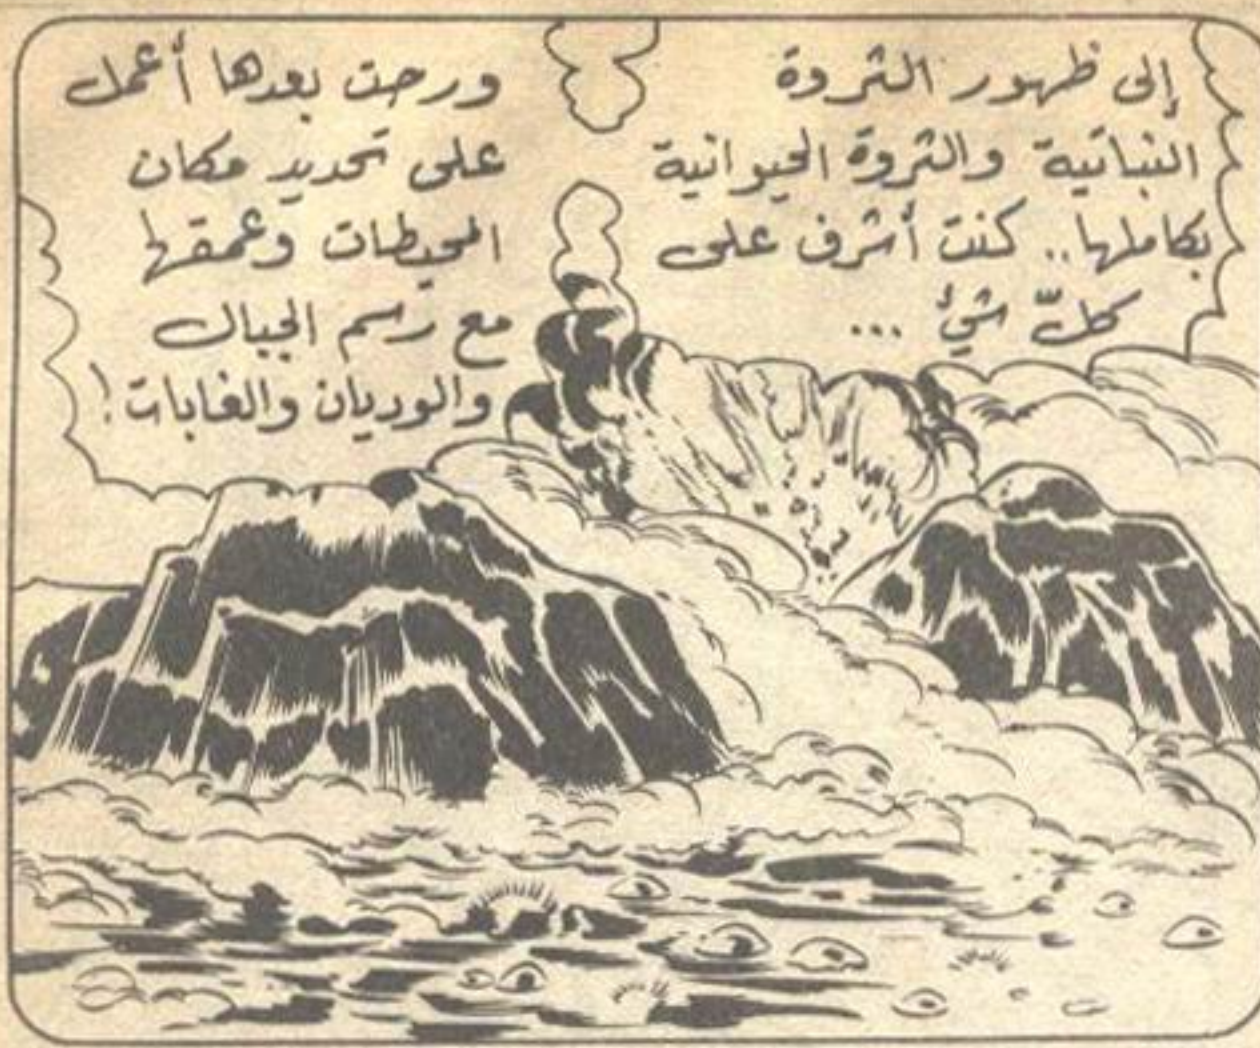 إلى ظهور الثروة
النباتية والثروة الحيوانية
بكاملها.. كنت أشرف على
كلّ شيء ...
ورحت بعدها أعمل
على تحديد مكان
المحيطات وعمقها
مع رسم الجبال
والوديان والغابات!